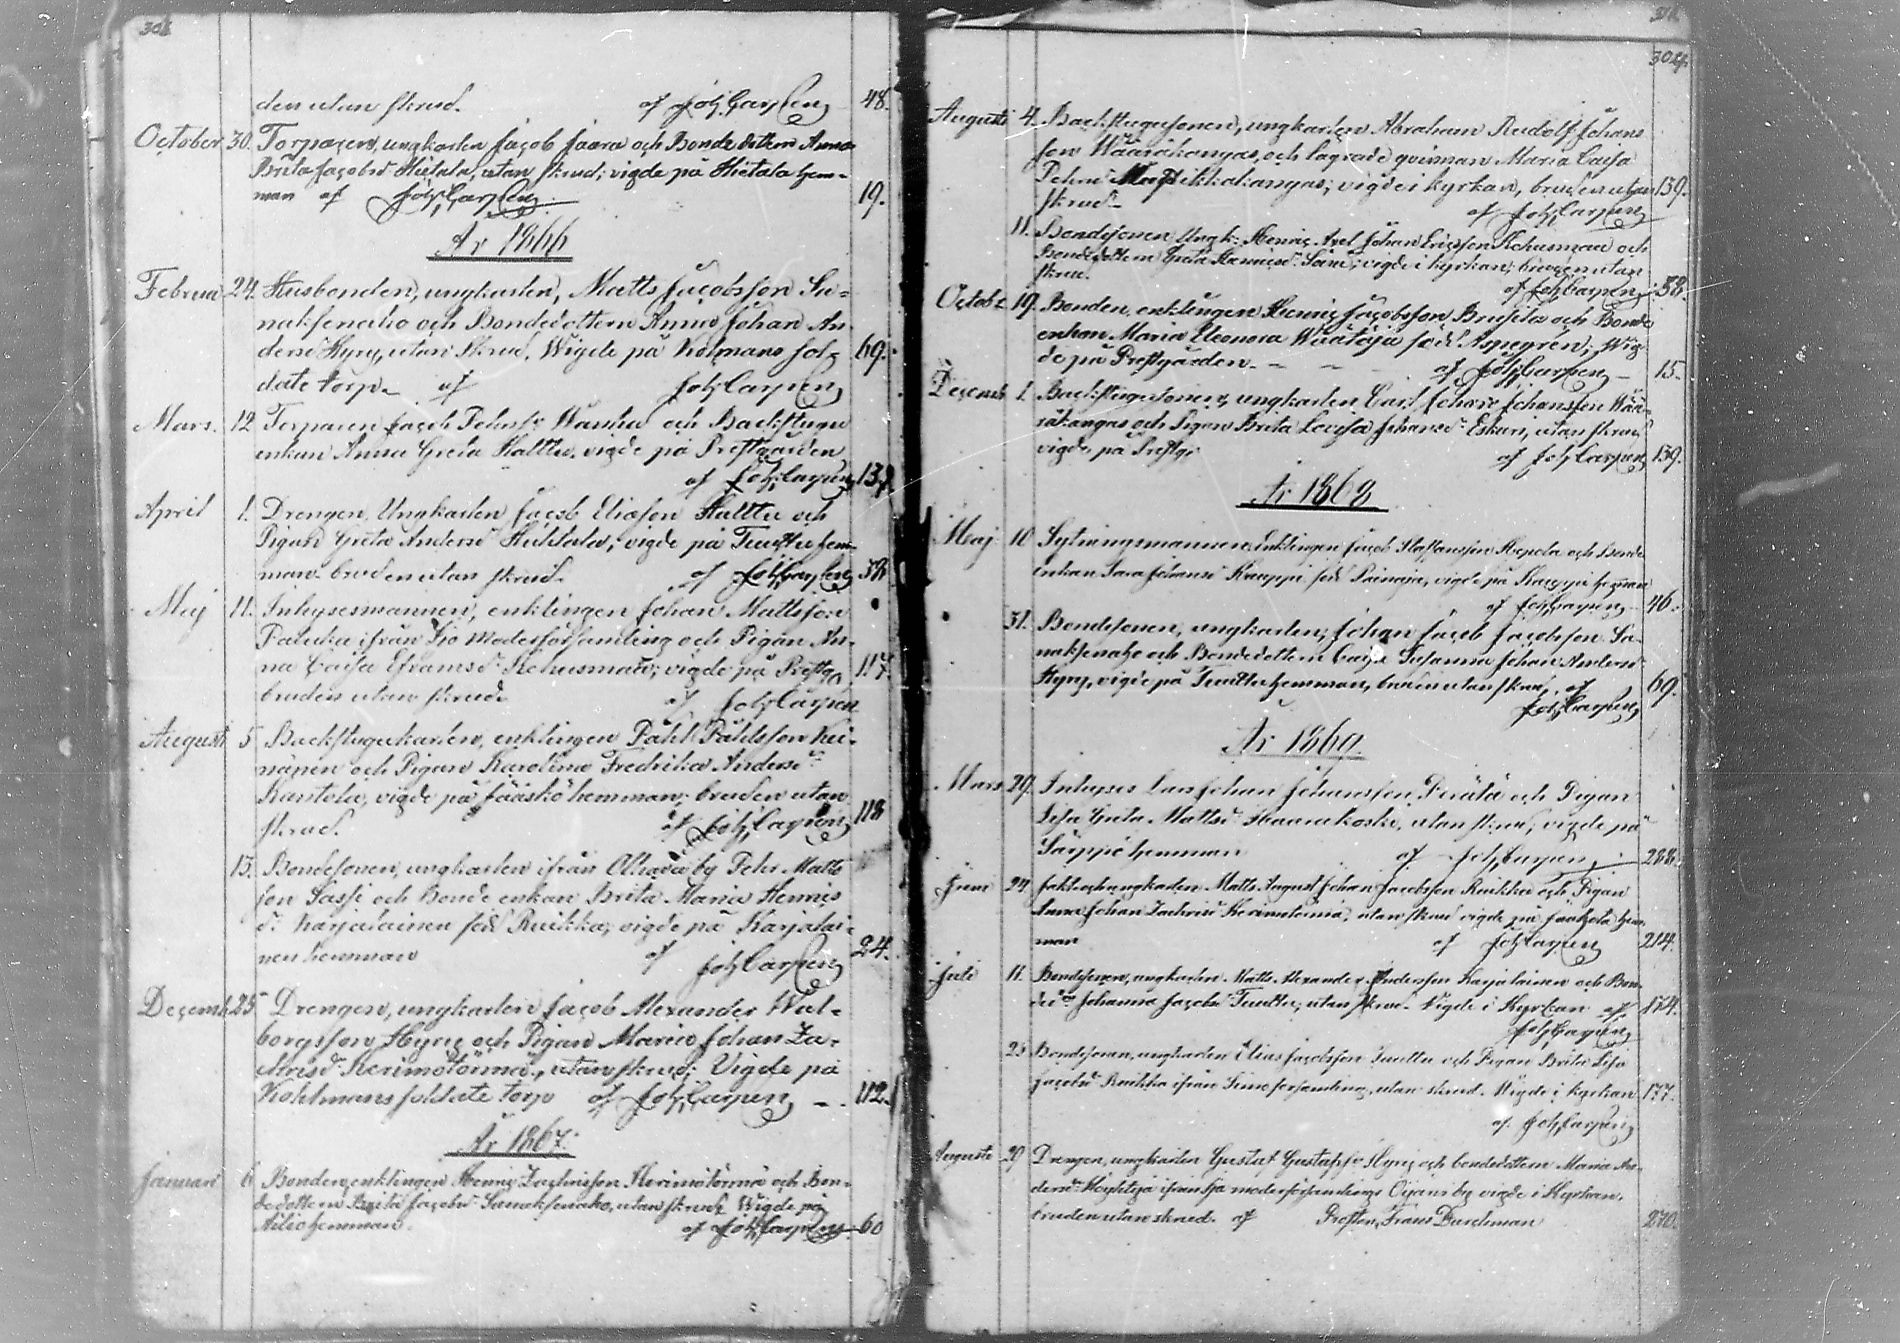 den utan skrud. af Joh. Carpén 48.
October 30. Torparen, ungkarlen Jacob Jaara och Bondedottren Anna
Brita Jacobsd. Hietala, utan skrud; vigde på Hietala hem-
man af Joh. Carpén 19.
År 1866
Februar 24. Husbonden, ungkarlen, Matts Jacobsson Sa-
naksenaho och Bondedottern Anna Johan An-
dersd Hyry, utan Skrud, Wigde på Kolmans sol- 69.
date torp. af Joh. Carpén
Mars. 12 Torparen Jacob Pehrss. Wanha och Backstugu
enkan Anna Greta Halttu, vigde på Prestgården
af Joh. Carpén 137.
April 1. Drengen, Ungkarlen Jacob Eliasson Halttu och
Pigan Greta Andersd. vigde på Tuuttu hem-
man bruden utan skrud. af Joh. Carpén 38.
Maj 11. Inhysesmannen, enklingen Johan Mattsson
ifrån Ijo Moderförsamling och Pigan An-
na Caisa Efraimsd. Kehusmaa; vigde på Prestg. 117.
bruden utan skrud. af Joh. Carpén
Augusti 5 Backstugukarlen, enklingen Påhl Påhlsson Kei-
nänen och Pigan Karolina Fredrika Andersd.
Kantola, vigde på Jääskö hemman; bruden utan
skrud. af Joh. Carpén 118
13. Bondesonen, ungkarlen ifrån Olhava by Pehr Matts
son Sassi och Bonde enkan Brita Maria Hennis
d. Karjalainen född Ruikka; vigde på Karjalai-
nen hemman af Joh. Carpén 24.
Decemb. 25 Drengen, ungkarlen Jacob Alexander Wal-
borgsson Hyry och Pigan Maria Johan Za-
chrisd. Kerimötörmä, utan skrud; Vigde på
Kohlmans soldate torp af Joh. Carpén 112.
År 1867.
Januari 6 Bonden, enklingen Hennis Zachrisson Kerimötörmä och Bon-
dedottern Brita Jacobsd Sanaksenaho, utan skrud. Wigde på
hemman. af Joh. Carpén 60
304.
Augusti 4. Backstugusonen, ungkarlen Abraham Rudolf Johans
son Wääräkangas, och lagrade qvinnan Maria Caisa
Pehrsd vigde i kyrkan, bruden utan 139.
skrud. af Joh. Carpén
11. Bondesonen Ungk. Hennis Axel Johan Ericsson Kehusmaa och
Bondedottern Greta vigde i kyrkan; bruden utan
skrud. af Joh. Carpén 58.
Octobr 19. Bonden, enklingen Hennis Jacobsson och Bonde
enkan Maria Eleonora Wäätäjä född Aspegren; Wig-
de på Prestgården. af Joh. Carpén 15.
Decemb 1. Backstugusonen, ungkarlen Carl Johan Johansson Wää-
räkangas och Pigan Brita Lovisa Johansd. utan skrud
vigde på Prestg. af Joh. Carpén 139.
År 1868
Maj 10 Sytningsmannen, Enklingen Jacob Staffansson Hepola och Bonde
enkan Sara Johansd Kauppi född vigde på Kauppi hemman
af Joh. Carpén 46.
31. Bondesonen, ungkarlen, Johan Jacob Jacobsson Sa-
naksenaho och Bondedottern Caisa Susanna Johan Andersd
Hyry, vigde på Tuuttu hemman, bruden utan skrud, af 69.
Joh. Carpén
År 1869.
Mars 29. Inhyses Johan Johansson och Pigan
Lisa Greta Mattsd. utan skrud; vigde på
hemman af Joh. Carpén 288.
Juni 24. ungkarlen Matts August Johan Jacobsson Ruikka och Pigan
Anna Johan Zachrisd Kerimötörmä, utan skrud vigde på Jaakola hem-
man af Joh. Carpén 214.
Juli 11. Bondesonen, ungkarlen Matts Alexander Andersson Karjalainen och Bon-
ded. Johanna Jacobsd Tuuttu; utan skrud. Vigde i Kyrkan af 174.
Joh. Carpén
25 Bondesonen, ungkarlen Elias Jacobsson Tuuttu och Pigan Brita Lisa
Jacobsd Ruikka ifrån Simo församling, utan skrud. Wigde i kyrkan 177.
af Joh. Carpén
Augusti 29 Drengen, ungkarlen Gustaf Gustafss. Hyry och bondedottern Maria An-
dersd. ifrån Ijo moderförsamlings by vigde i Kyrkan,
bruden utan skrud. af Presten, Frans Durchman 270.